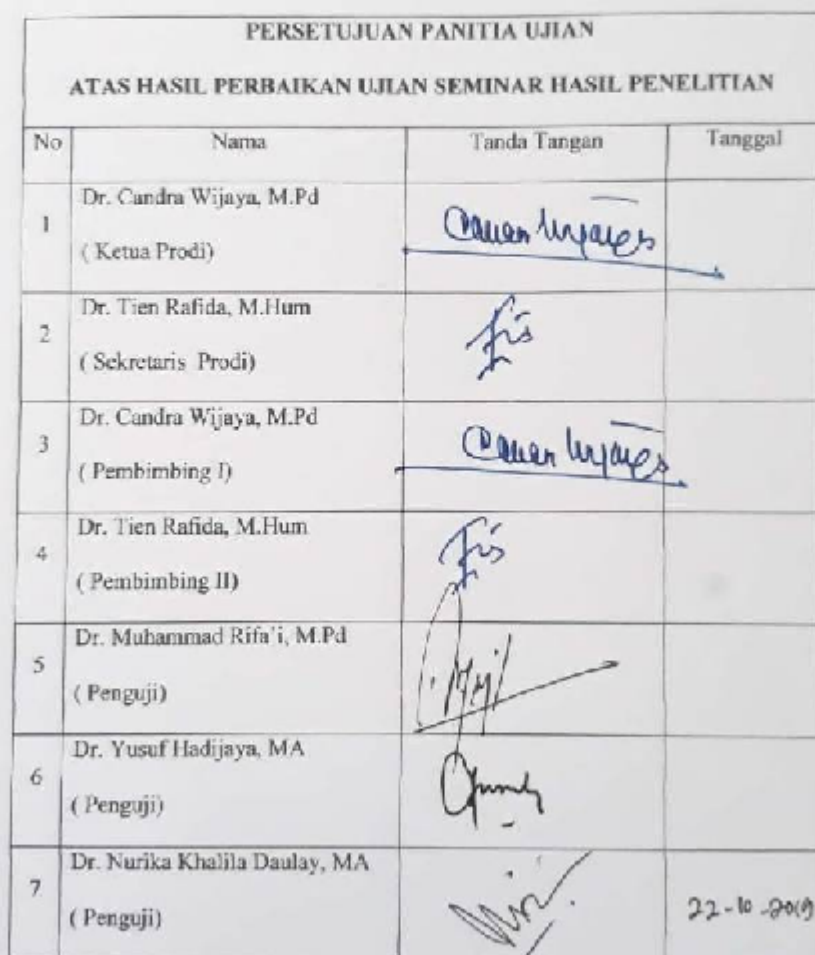 PERSETUJUAN PANITIA UJIAN
ATAS HASIL PERBAIKAN UJIAN SEMINAR HASIL PENELITIAN
No Nama Tanda Tangan Tanggal
1 Dr. Candra Wijaya, M.Pd
( Ketua Prodi)
2 Dr. Tien Rafida, M.Hum
( Sekretaris Prodi)
3 Dr. Candra Wijaya, M.Pd
( Pembimbing I)
4 Dr. Tien Rafida, M.Hum
( Pembimbing II)
5 Dr. Muhammad Rifa'i, M.Pd
( Penguji)
6 Dr. Yusuf Hadijaya, MA
( Penguji)
7 Dr. Nurika Khalila Daulay, MA
( Penguji) 22-10-2019